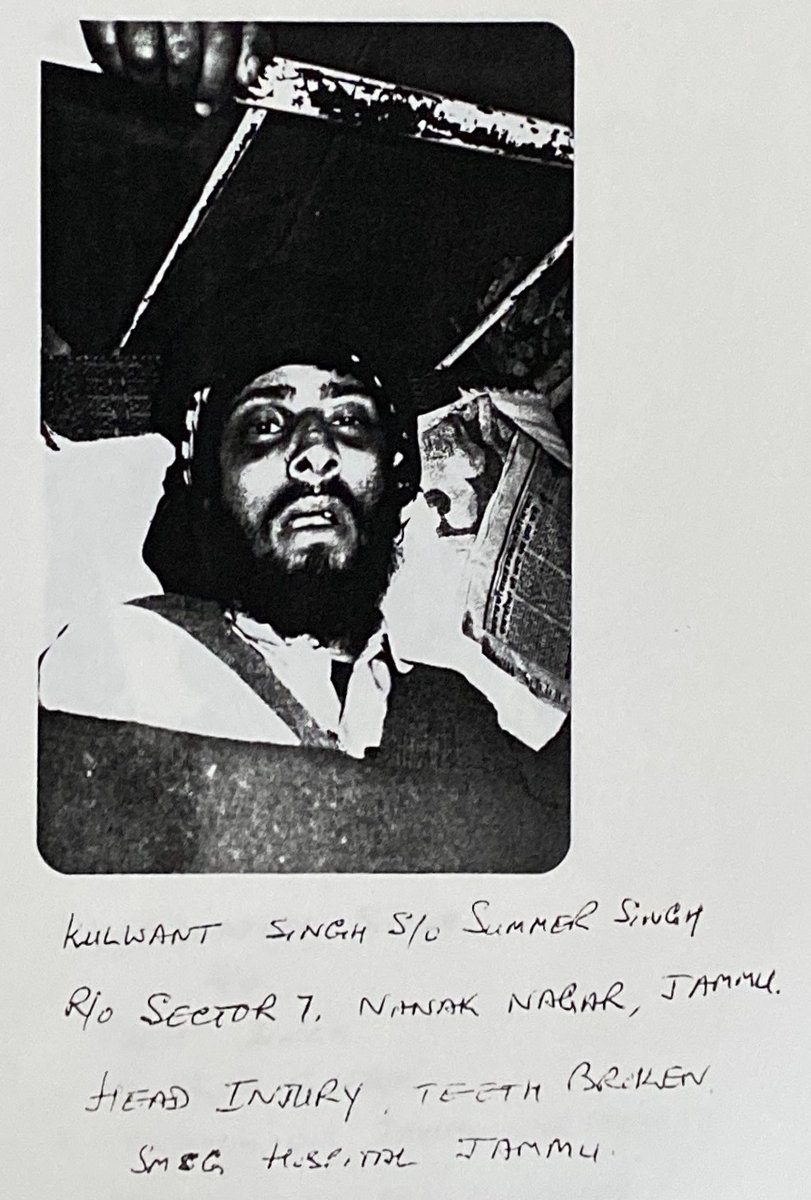 KULWANT SINGH S/o SUMMER SINGH
R/o SECTOR 7. NANAK NAGAR, JAMMU.
HEAD INJURY. TEETH BROKEN
SM&G HOSPITAL JAMMU.